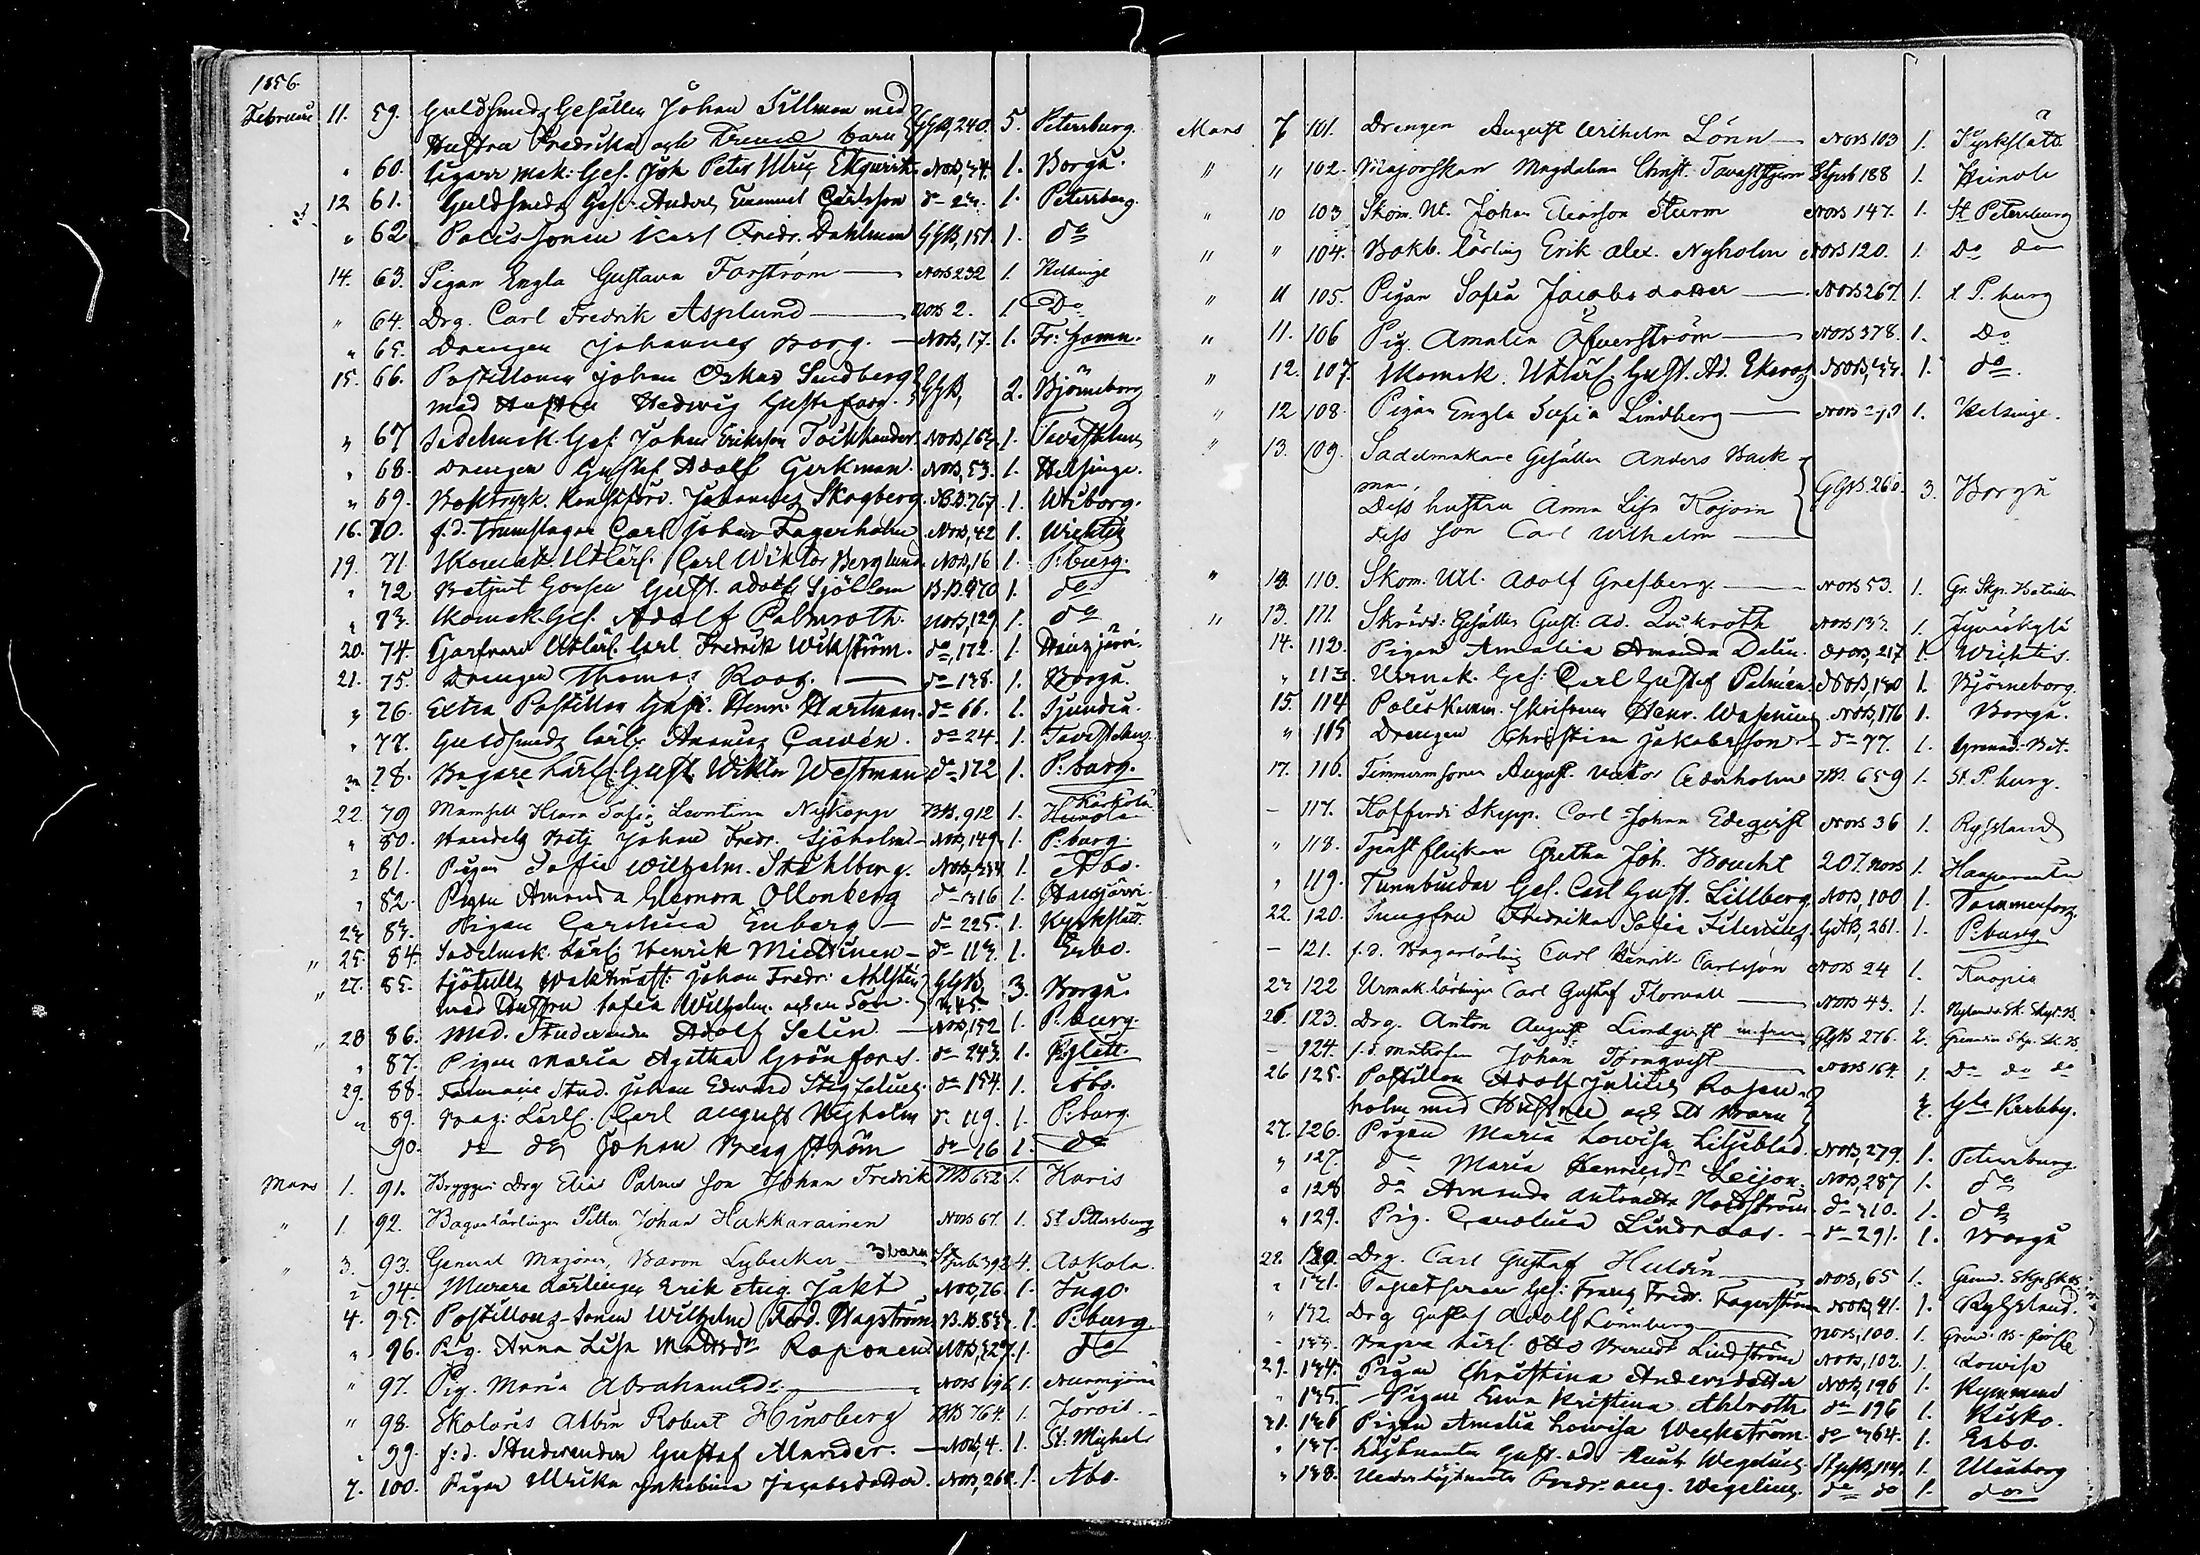 1856.
Februari 11. 59. Guldsmeds Gesällen Johan Tillman med GGB, 240. 5. Petersburg.
Hustru Fredrika och Trenne barn
" 60. Cigarr mak: Ges. Joh Peter Ulric Ekqvist NoB, 1. Borgå.
12 61. Guldsmeds Ges: Anders Emanuel Carlsson do 1. Petersburg.
" 62. Polis Sonen Karl Fredr. Dahlman GGB, 151. 1. do
14. 63. Pigan Engla Gustava Forström — NoB 232 1. Helsinge
" 64. Drg. Carl Fredrik Asplund — NoB 2. 1 Do
" 65. Drengen Johannes Borg. — NoB, 17. 1. Fr: Hamn.
15. 66. Postillonen Johan Oskar Sundberg GGB, 2. Björneborg
med Hustru Hedwig Gustafva.
" 67 Sadelmak. Ges: Johan Eriksson NoB, 1. Tavasthus
" 68. Drengen Gustaf Adolf Gerkman. NoB, 53. 1. Helsinge.
" 69. Boktryck. Konstförv. Johannes Skogberg. NB. 767. 1. Wiborg.
16. 70. f.d. trumslagare Carl Johan Fagerholm NoB, 42 1. Wichtis
19. 71. Skomak. Utlärl. Carl Wiktor Berglund NoB, 16 1. P:burg.
" 72 Gust. Adolf Sjöblom B.B. 970 1. do
" 73. Skomak. Ges. Adolf Palmroth. NoB, 129 1. do
20. 74. Garfvare Utlärl. Carl Fredrik Wikström. do, 172. 1. Hausjärvi.
21. 75. Drengen Thomas Roos. — do 138. 1. Borgå.
" 76. Extra Postillon Gust. Henr: Hartman. do 66. 1. Sjundeå.
" 77. Guldsmeds lärl. Cawén. do 24. 1. Tavastehus.
" 78. Bagare Lärl. Gust. Wiktor Westman do 172 1. P:burg.
22. 79 Mamsell Klara Sofia Leontina Nykopp NB. 912 1. Kärkölä
Heinola
" 80. Handels Betj Johan Fredr. Sjöholm — NoB, 149. 1. P:burg.
" 81. Pigan Sofia Wilhelm. Stahlberg. NoB, 1. Åbo.
" 82. Pigan Amanda Eleonora Ollonberg do 316 1. Hausjärvi.
23 83. Pigan Carolina Enberg — do 225. 1. Kyrkslätt.
" 25. 84. Sadelmak. Lärl. Henrik Miettinen — do 113. 1. Esbo.
" 27. 85. Sjötulls Waktmäst. Johan Fredr: Ahlstén GGB 3. Borgå.
med Hustru Sofia Wilhelm. och en Son.
" 28 86. Med. Studeranden Adolf Selin — NoB, 152 1. P:burg.
" 87. Pigan Maria Agatha Grönfors. do 243. 1. Kslätt.
29. 88. Farmacie Stud. Johan Edward Stigzelius. do 154. 1. Åbo.
" 89. Bag: Lärl. Carl August Nyholm do 119. 1. P:burg.
90. do do Johan Bergström do 16 1. do
Mars 1. 91. Bryggeri Drg Elias Palmes Son Johan Fredrik NB 652 1. Karis
" 1. 92. Bagarlärlingen Petter Johan Hakkarainen NoB 67. 1. St Petersburg
" 3. 93. General Majoren, Baron Lybecker 3 barn 4. Askola.
" 94. Murare Lärlingen Erik Aug. Jakt NoB, 76. 1. Ingo.
4. 95. Postillons-Sonen Wilhelm Ferd. Hagström B.B. 833. 1. P:burg.
" 96. Pig. Anna Lisa Mattsdr Raponen NoB, 327. 1. do
" 97. Pig. Maria Abrahamsdr. — NoB 196 1. Nurmijärvi
" 98. Skolaris Albin Robert Hinsberg NB 764. 1. Jorois.
" 99. f: d. Studeranden Gustaf Alander. — NoB, 4. 1. St. Michel
7. 100. Pigan Ulrika Jakobina Jacobsdotter. NoB, 262. 1. Åbo.
Mars 7 101. Drengen August Wilhelm Lönn — NoB 103 1. Kyrkslätt
" " 102. Majorskan Magdalena Christ. Tavaststjerna 188 1. Heinola
" 10 103 Skom. Ut. Johan Eliasson Sturm NoB 147. 1. St Petersburg
" " 104. Bokb. lärling Erik Alex. Nyholm NoB 120. 1. Do do
" 11 105. Pigan Sofia Jacobsdotter — NoB 267. 1. St P. burg
" 11. 106 Pig. Amalia Öfverström — NoB 378. 1. Do
" 12. 107. Skomak. Utlärl. Gust. Ad. Ekroos NoB, 1. do.
" 12 108. Pigan Engla Sofia Lindberg — NoB 1. Helsinge.
" 13. 109. Sadelmakare Gesällen Anders Back-
man, GGB. 260. 3. Borgå
Dess hustru Anna Lisa Kojoin
dess Son Carl Wilhelm —
" 13. 110. Skom. Utl. Adolf Grefberg. — NoB 53. 1. Gr. Skp. Bataillon
" 13. 111. Skrädd: Gesällen Gust: Ad. NoB 137. 1. Jyväskylä
14. 112. Pigan Amalia Amanda Dalin. NoB, 217 1. Wichtis.
" 113. Urmak. Ges: Carl Gustaf Palmén. NoB, 130 1. Björneborg.
15. 114 Poliskamm. Skrifvaren Henr. Wasenius NoB, 176 1. Borgå.
" 115 Drengen Christian Jakobsson — do 77. 1. Grenad. Bat.
17. 116. Timmerm Sonen August Viktor Cederholm NB. 659 1. St. P. burg.
— 117. Kofferdi Skepp. Carl Johan Edeqvist NoB 36 1. Ryssland
" 118. Tjenstflickan Gretha Joh. Boucht 207. NoB 1. Haaparanta
" 119. Tunnbindar Ges. Carl Gust. Lillberg NoB, 100 1. Tammerfors.
22. 120. Jungfru Fredrika Sofia Silenius GGB, 261. 1. P:burg.
— 121. f.d. Bagarlärling Carl Henrik Carlsson NoB 24 1. Kuopio
23 122 Urmak. Lärlingen Carl Gustaf Florvall — NoB 43. 1. Nylands Sk. Skpt. B.
26. 123. Drg. Anton August Lindqvist m. fru GGB 276. 2. Grenadier Skp. Sk. B.
— 124. f.d. Johan Törnqvist — NoB 164. 1. Do do do
26 125. Postillon Adolf Julius Rosen-
holm med Hustru och Barn Gla Karleby.
27. 126. Pigan Maria Lowisa Liljeblad. NoB, 279. 1. Petersburg.
" 127. do Maria Henricsdr Leijon. NoB, 287 1. do
" 128 do Amanda Antonetta Nordström do 310. 1. do
" 129. Pig. Carolina Lindroos. — do 291. 1. Borgå
28. 130. Drg. Carl Gustaf Huldin — NoB, 65 1. Grenad. Skp. Sk. B.
" 131. Ges: Frans Fredr. Fagerström NoB, 41. 1. Ryssland.
" 132 Drg Gustaf Adolf Lönnberg — NoB, 100. 1.
— 133. Bagare Lärl. Otto Berndt Lindström NoB, 102. 1. Lowisa
29. 134. Pigan Christina Andersdotter NoB, 196 1. Kymmene
" 135. Pigan Kristina Ahlroth do 196 1. Kisko.
31. 136 Pigan Amalia Lowisa Weckström. do 364. 1. Esbo.
" 137. Löjtnanten Gust. Ad. Wegelius 114. 1. Uleåborg
" 138. Underlöjtnanten Fredr. Aug. Wegelius. do do 1. do